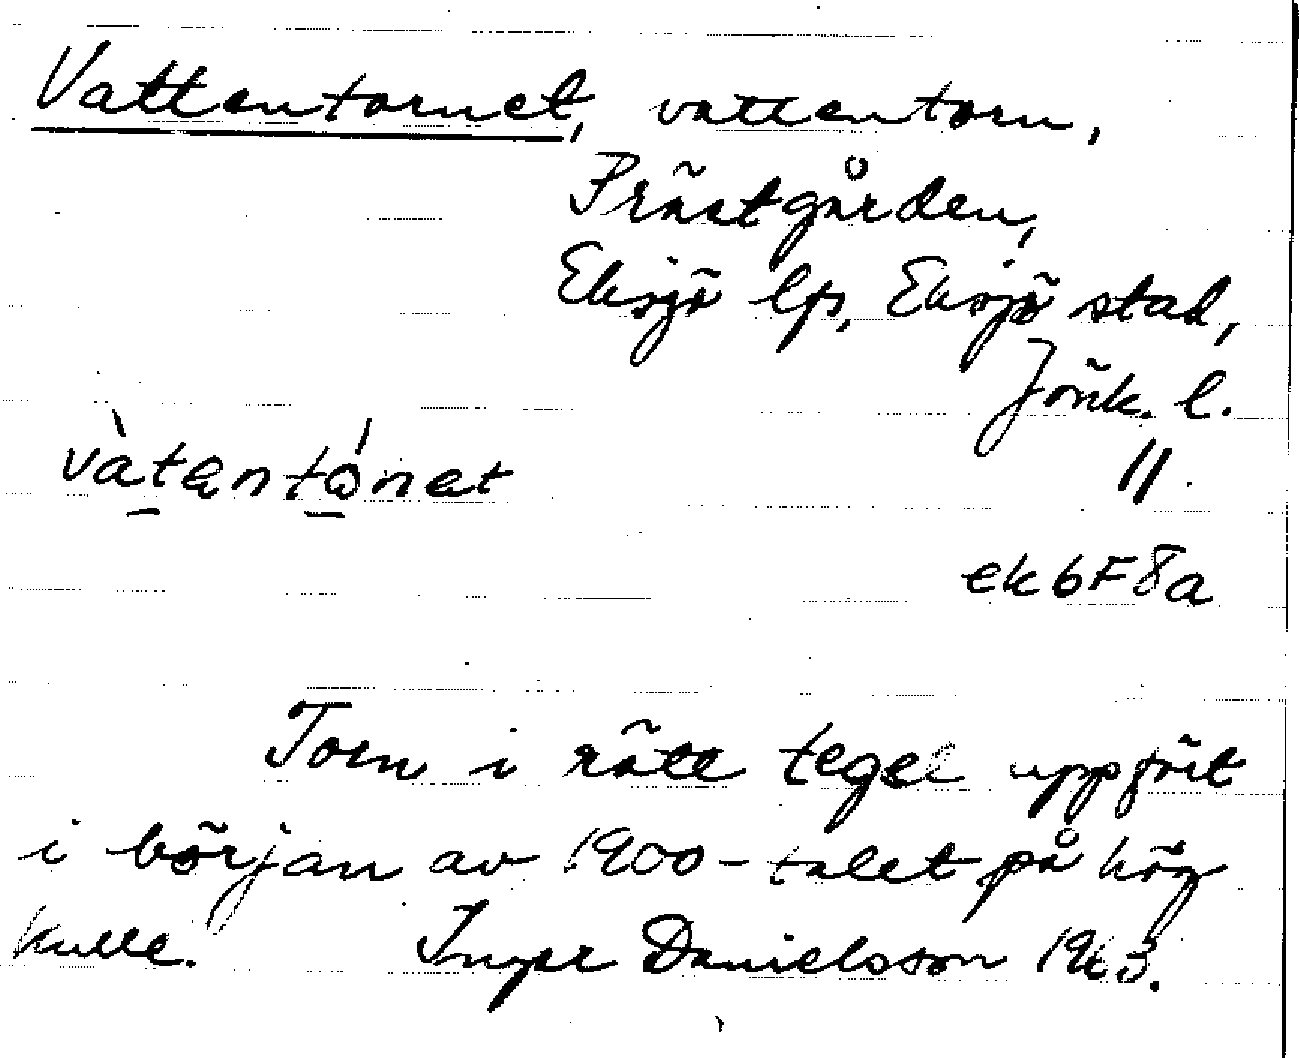 Vattentornet, vattentorn,
Prästgården,
Eksjö lfs, Eksjö stad,
Jönk. l.
vàtentónet
11.
ek6F8a
Torn i rött tegel uppfört
i början av 1900-talet på hög
kulle. Inger Danielsson 1963.